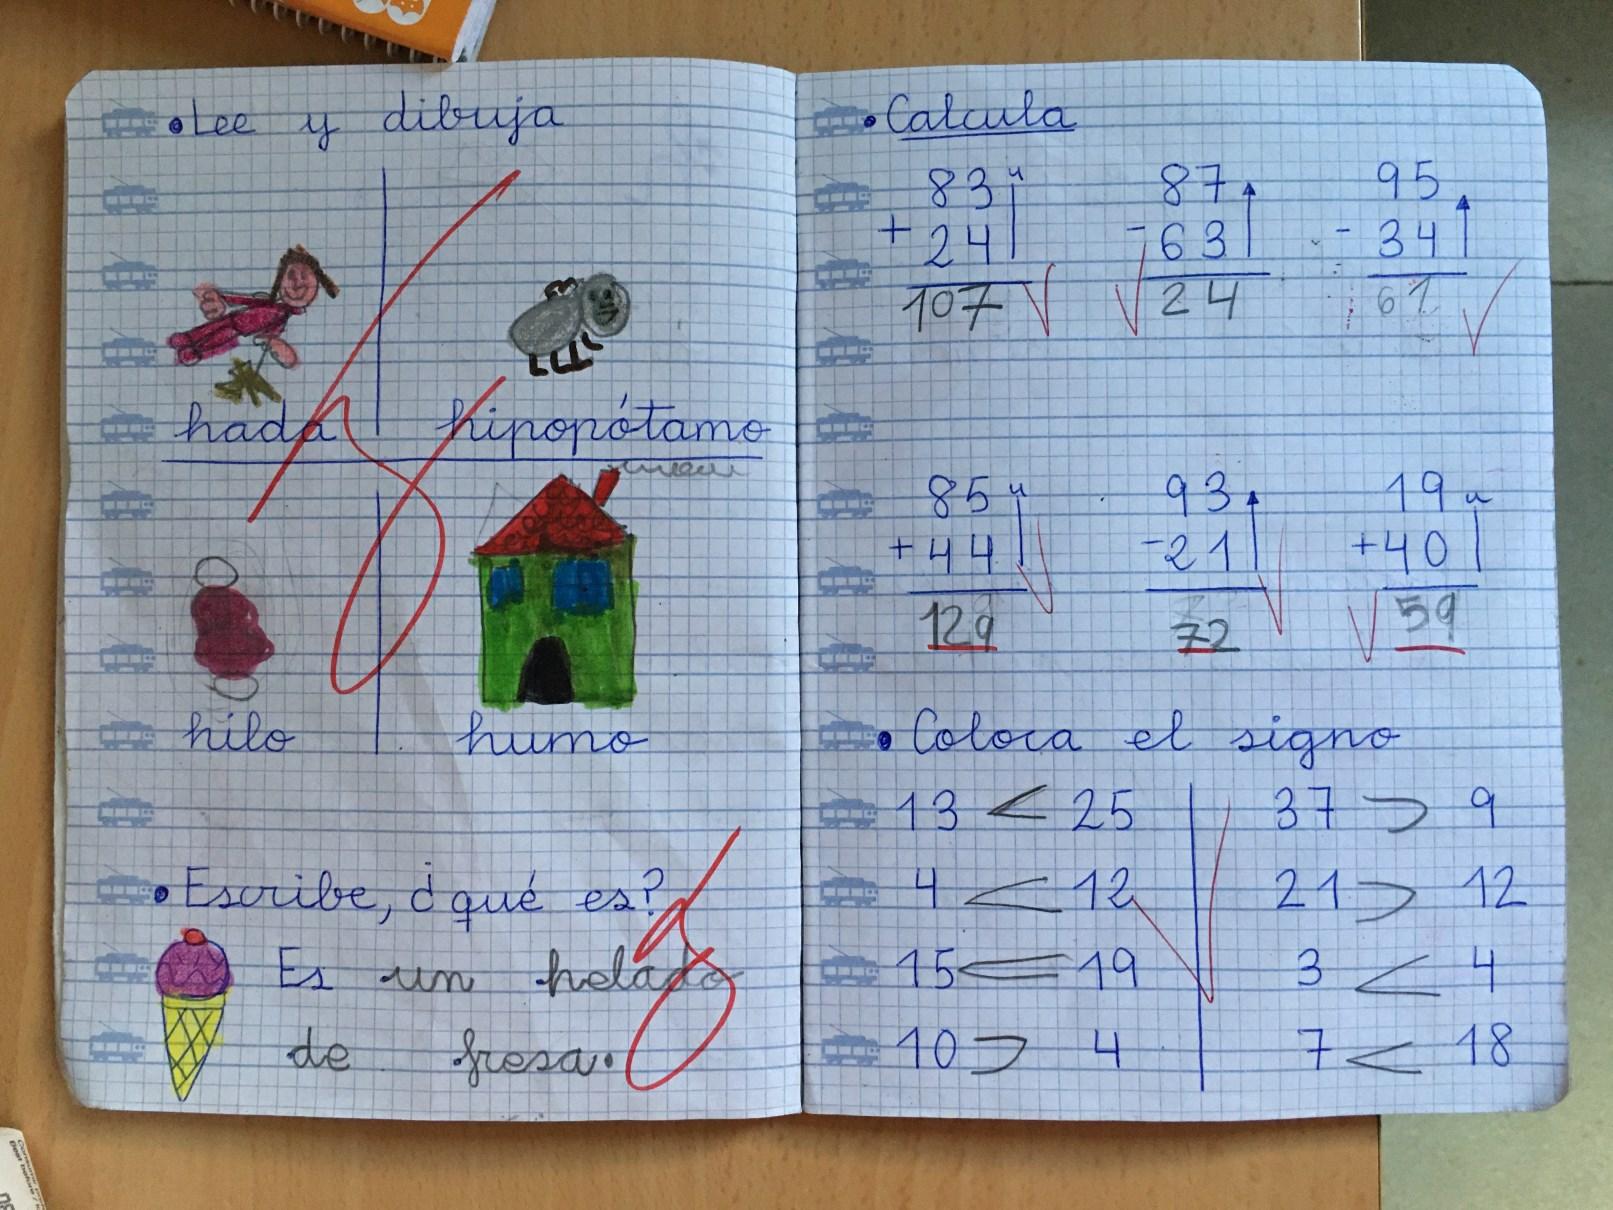 • Lee y dibuja
hada hipopótamo
hilo humo
• Escribe, ¿qué es?
Es un helado
de fresa.
• Calcula
83 87 95
+ 24 - 63 - 34
107 24 61
85 93 19
+ 44 - 21 + 40
129 72 59
• Coloca el signo
13 < 25 37 > 9
4 < 12 21 > 12
15 < 19 3 < 4
10 > 4 7 < 18